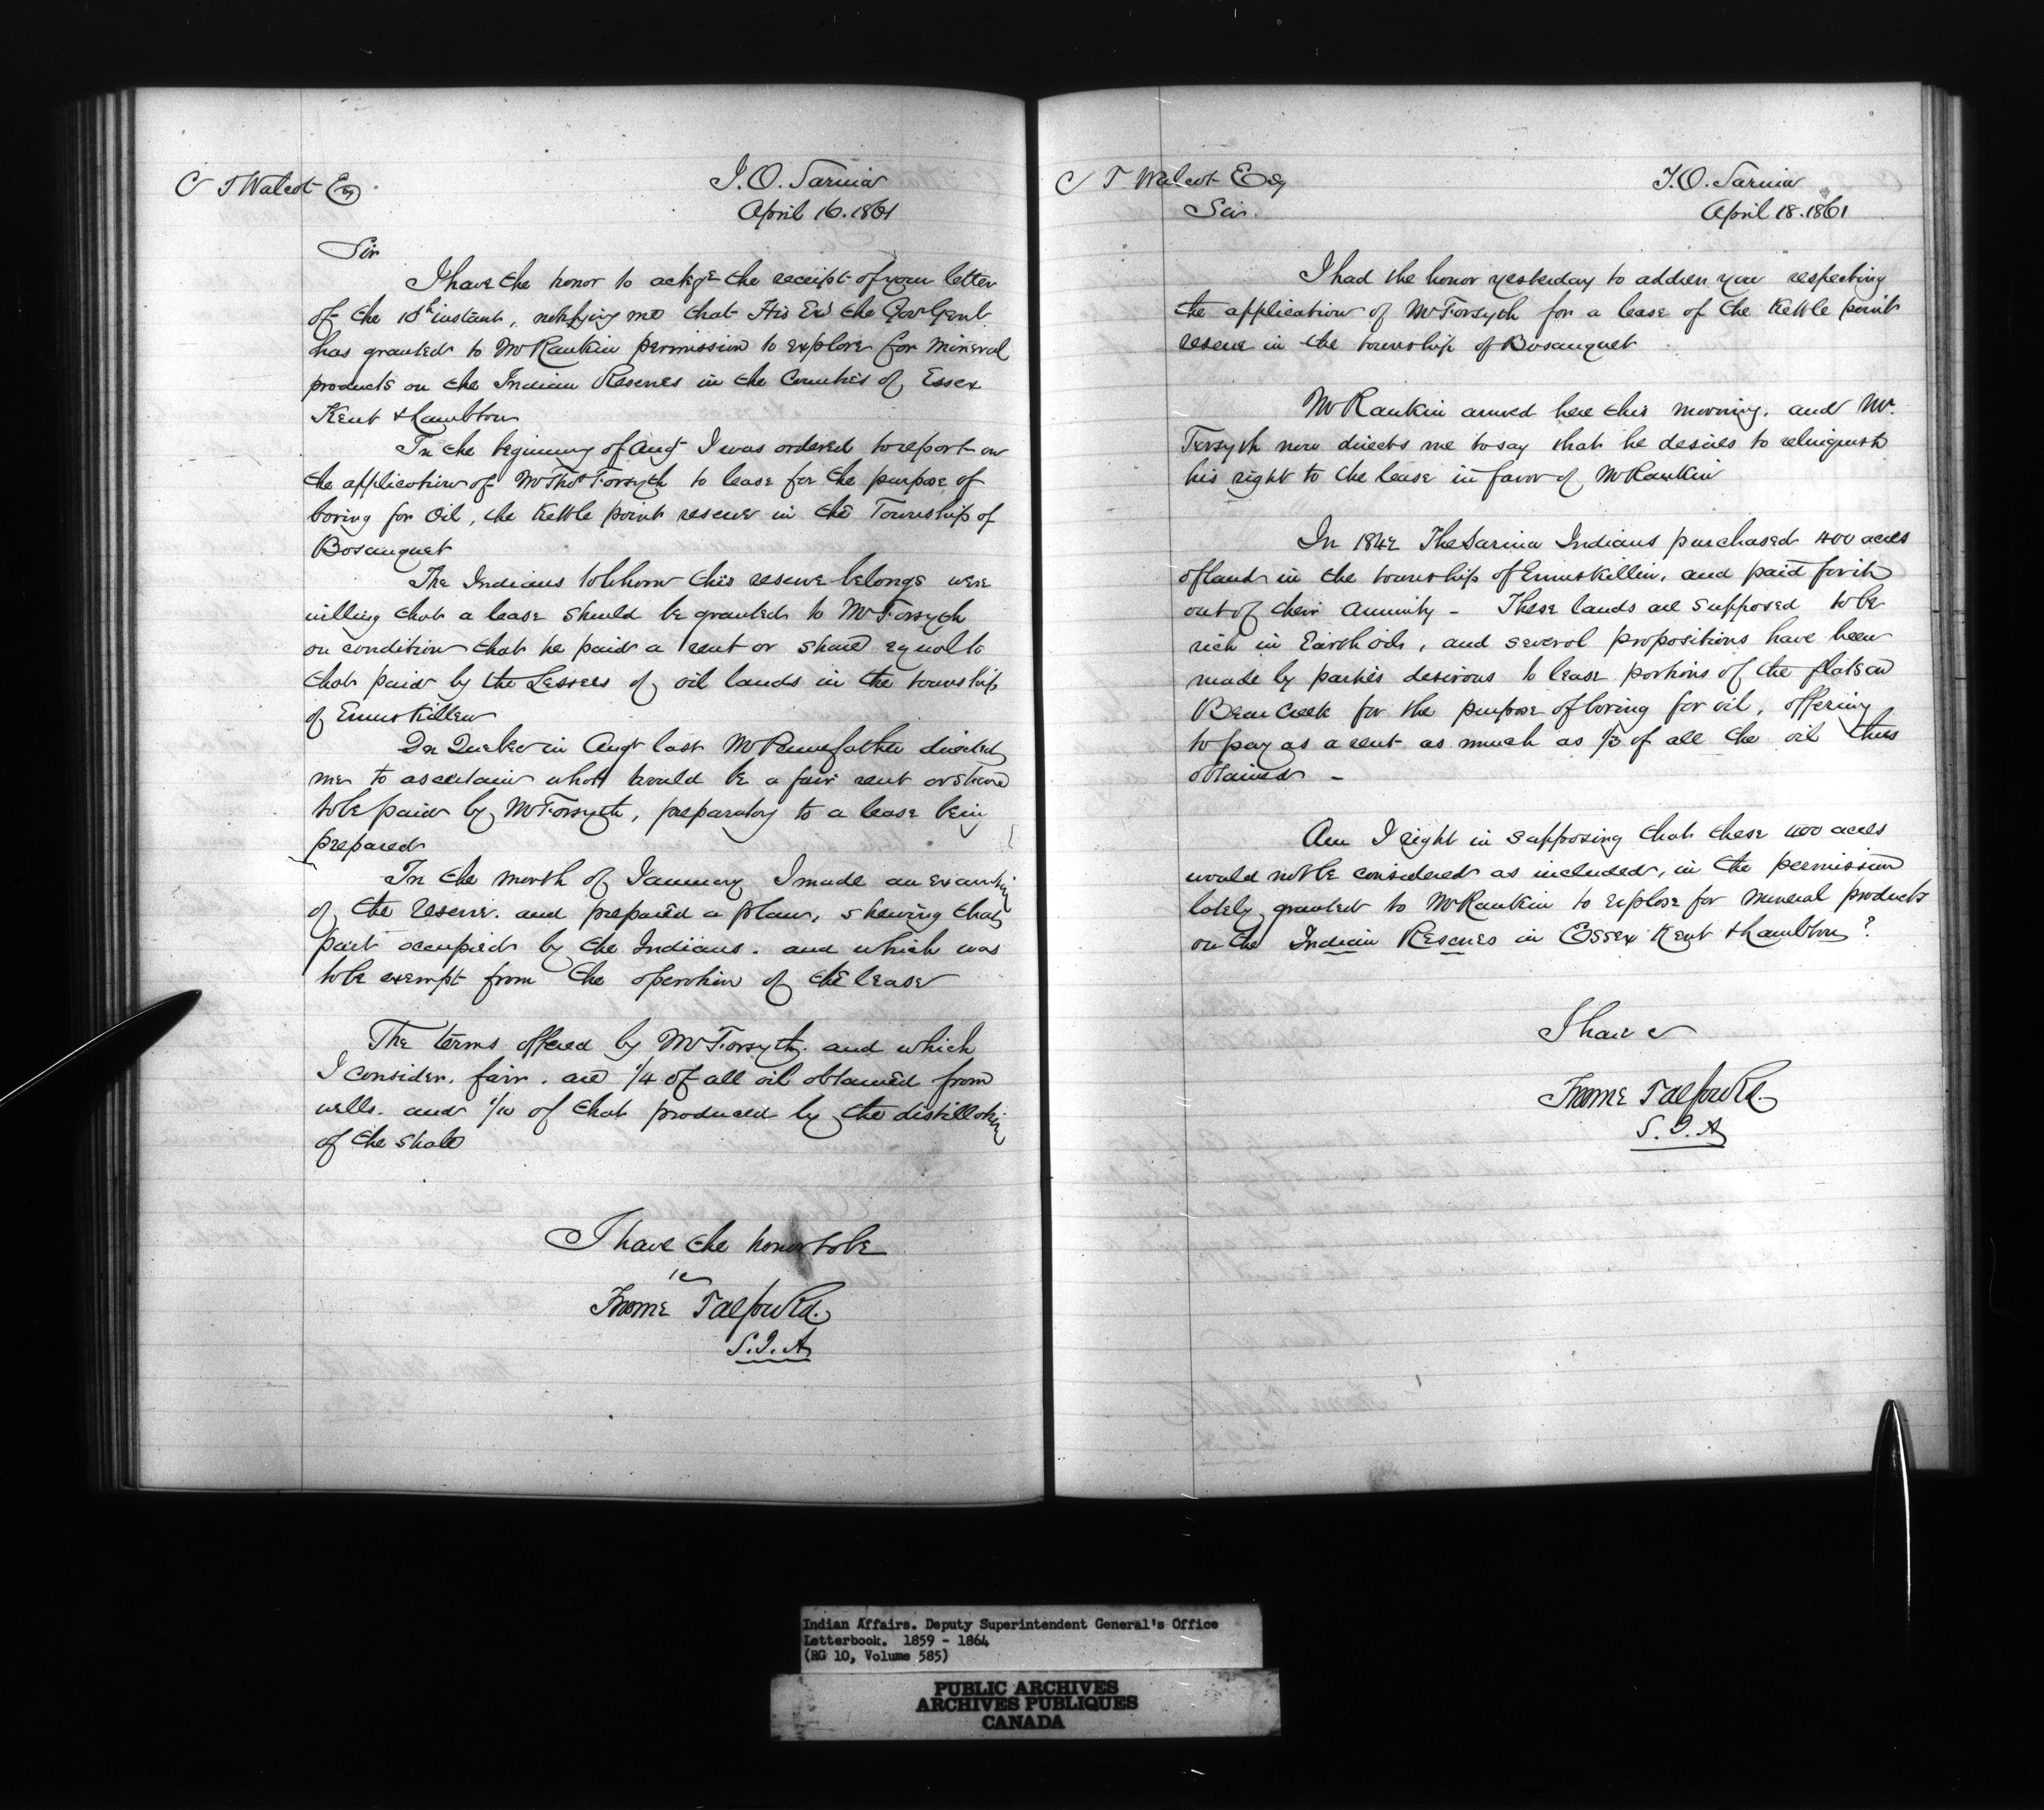 C T Walcot Esq.
I.O. Sarnia
April 16. 1861
Sir
I have the honor to ackge the receipt of your letter
of the 10th instant, notifying me that His Ex the Gov Genl
has granted to Mr Rankin permission to explore for mineral
products on the Indian Reserves in the Counties of Essex
Kent & Lambton
In the beginning of Augt I was ordered to report on
the application of Mr Thos Forsyth to lease for the purpose of
boring for Oil, the Kettle point reserve in the Township of
Bosanquet
The Indians to whom this reserve belongs were
willing that a lease should be granted to Mr Forsyth
on condition that he paid a rent or share equal to
that paid by the Lessees of oil lands in the township
of Enniskillen
In Quebec in Augt last Mr Pennefather directed
me to ascertain what would be a fair rent or share
to be paid by Mr Forsyth, preparatory to a lease being
prepared
In the month of January I made an examtion
of the reserve. and prepared a plan, shewing that
part occupied by the Indians. and which was
to be exempt from the operation of the lease
The terms offered by Mr Forsyth. and which
I consider. fair. are 1/4 of all oil obtained from
wells. and 1/10 of that produced by the distillation
of the shale
I have the honor to be
&c
Froome Talfourd.
S.I.A
C T Walcot Esq
I.O. Sarnia
Sir.
April 18. 1861
I had the honor yesterday to address you respecting
the application of Mr Forsyth for a lease of the Kettle point
reserve in the township of Bosanquet
Mr Rankin arrived here this morning. and Mr.
Forsyth now directs me to say that he desires to relinquish
his right to the lease in favor of Mr Rankin
In 1842 The Sarnia Indians purchased 400 acres
of land in the township of Enniskillin, and paid for it
out of their annuity - These lands are supposed to be
rich in Earth oils, and several propositions have been
made by parties desirous to lease portions of the flats on
Bear Creek for the purpose of boring for oil, offering
to pay as a rent as much as 1/3 of all the oil thus
obtained -
Am I right in supposing that these 400 acres
would not be considered as included, in the permission
lately granted to Mr Rankin to explore for mineral products
on the Indian Reserves in Essex Kent & Lambton?
I have &
Froome Talfourd.
S.I.A
Indian Affairs. Deputy Superintendent General's Office
Letterbook. 1859 - 1864
(RG 10, Volume 585)
PUBLIC ARCHIVES
ARCHIVES PUBLIQUES
CANADA